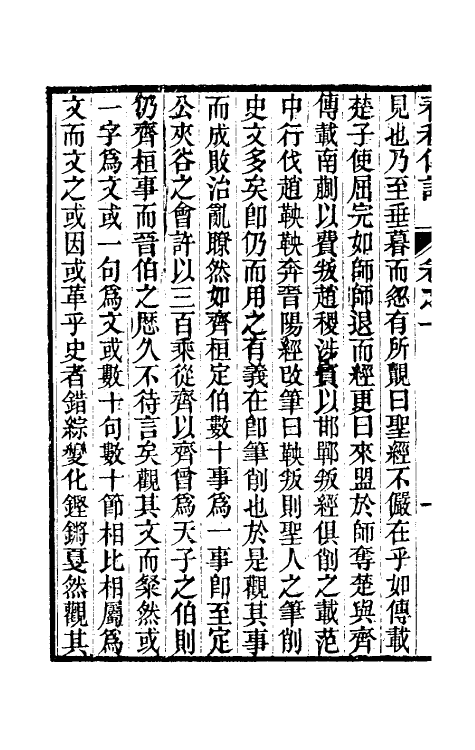 見也乃至垂暮而忽有所覿曰聖經不儼在乎如傳載
楚子使屈完如師師退而經更曰來盟於師奪楚與齊
傳載南蒯以費叛趙稷涉賔以邯鄲叛經俱削之載范
中行伐趙鞅鞅奔晉陽經改筆曰鞅叛則聖人之筆削
史文多矣卽仍而用之有義在卽筆削也於是觀其事
而成敗治亂瞭然如齊桓定伯數十事爲一事卽至定
公夾谷之會許以三百乘從齊以齊曾爲天子之伯則
仍齊桓事而晉伯之歴久不待言矣觀其文而粲然或
一字爲文或一句爲文或數十句數十節相比相屬爲
文而文之或因或革乎史者錯綜變化鏗鏘戛然觀其